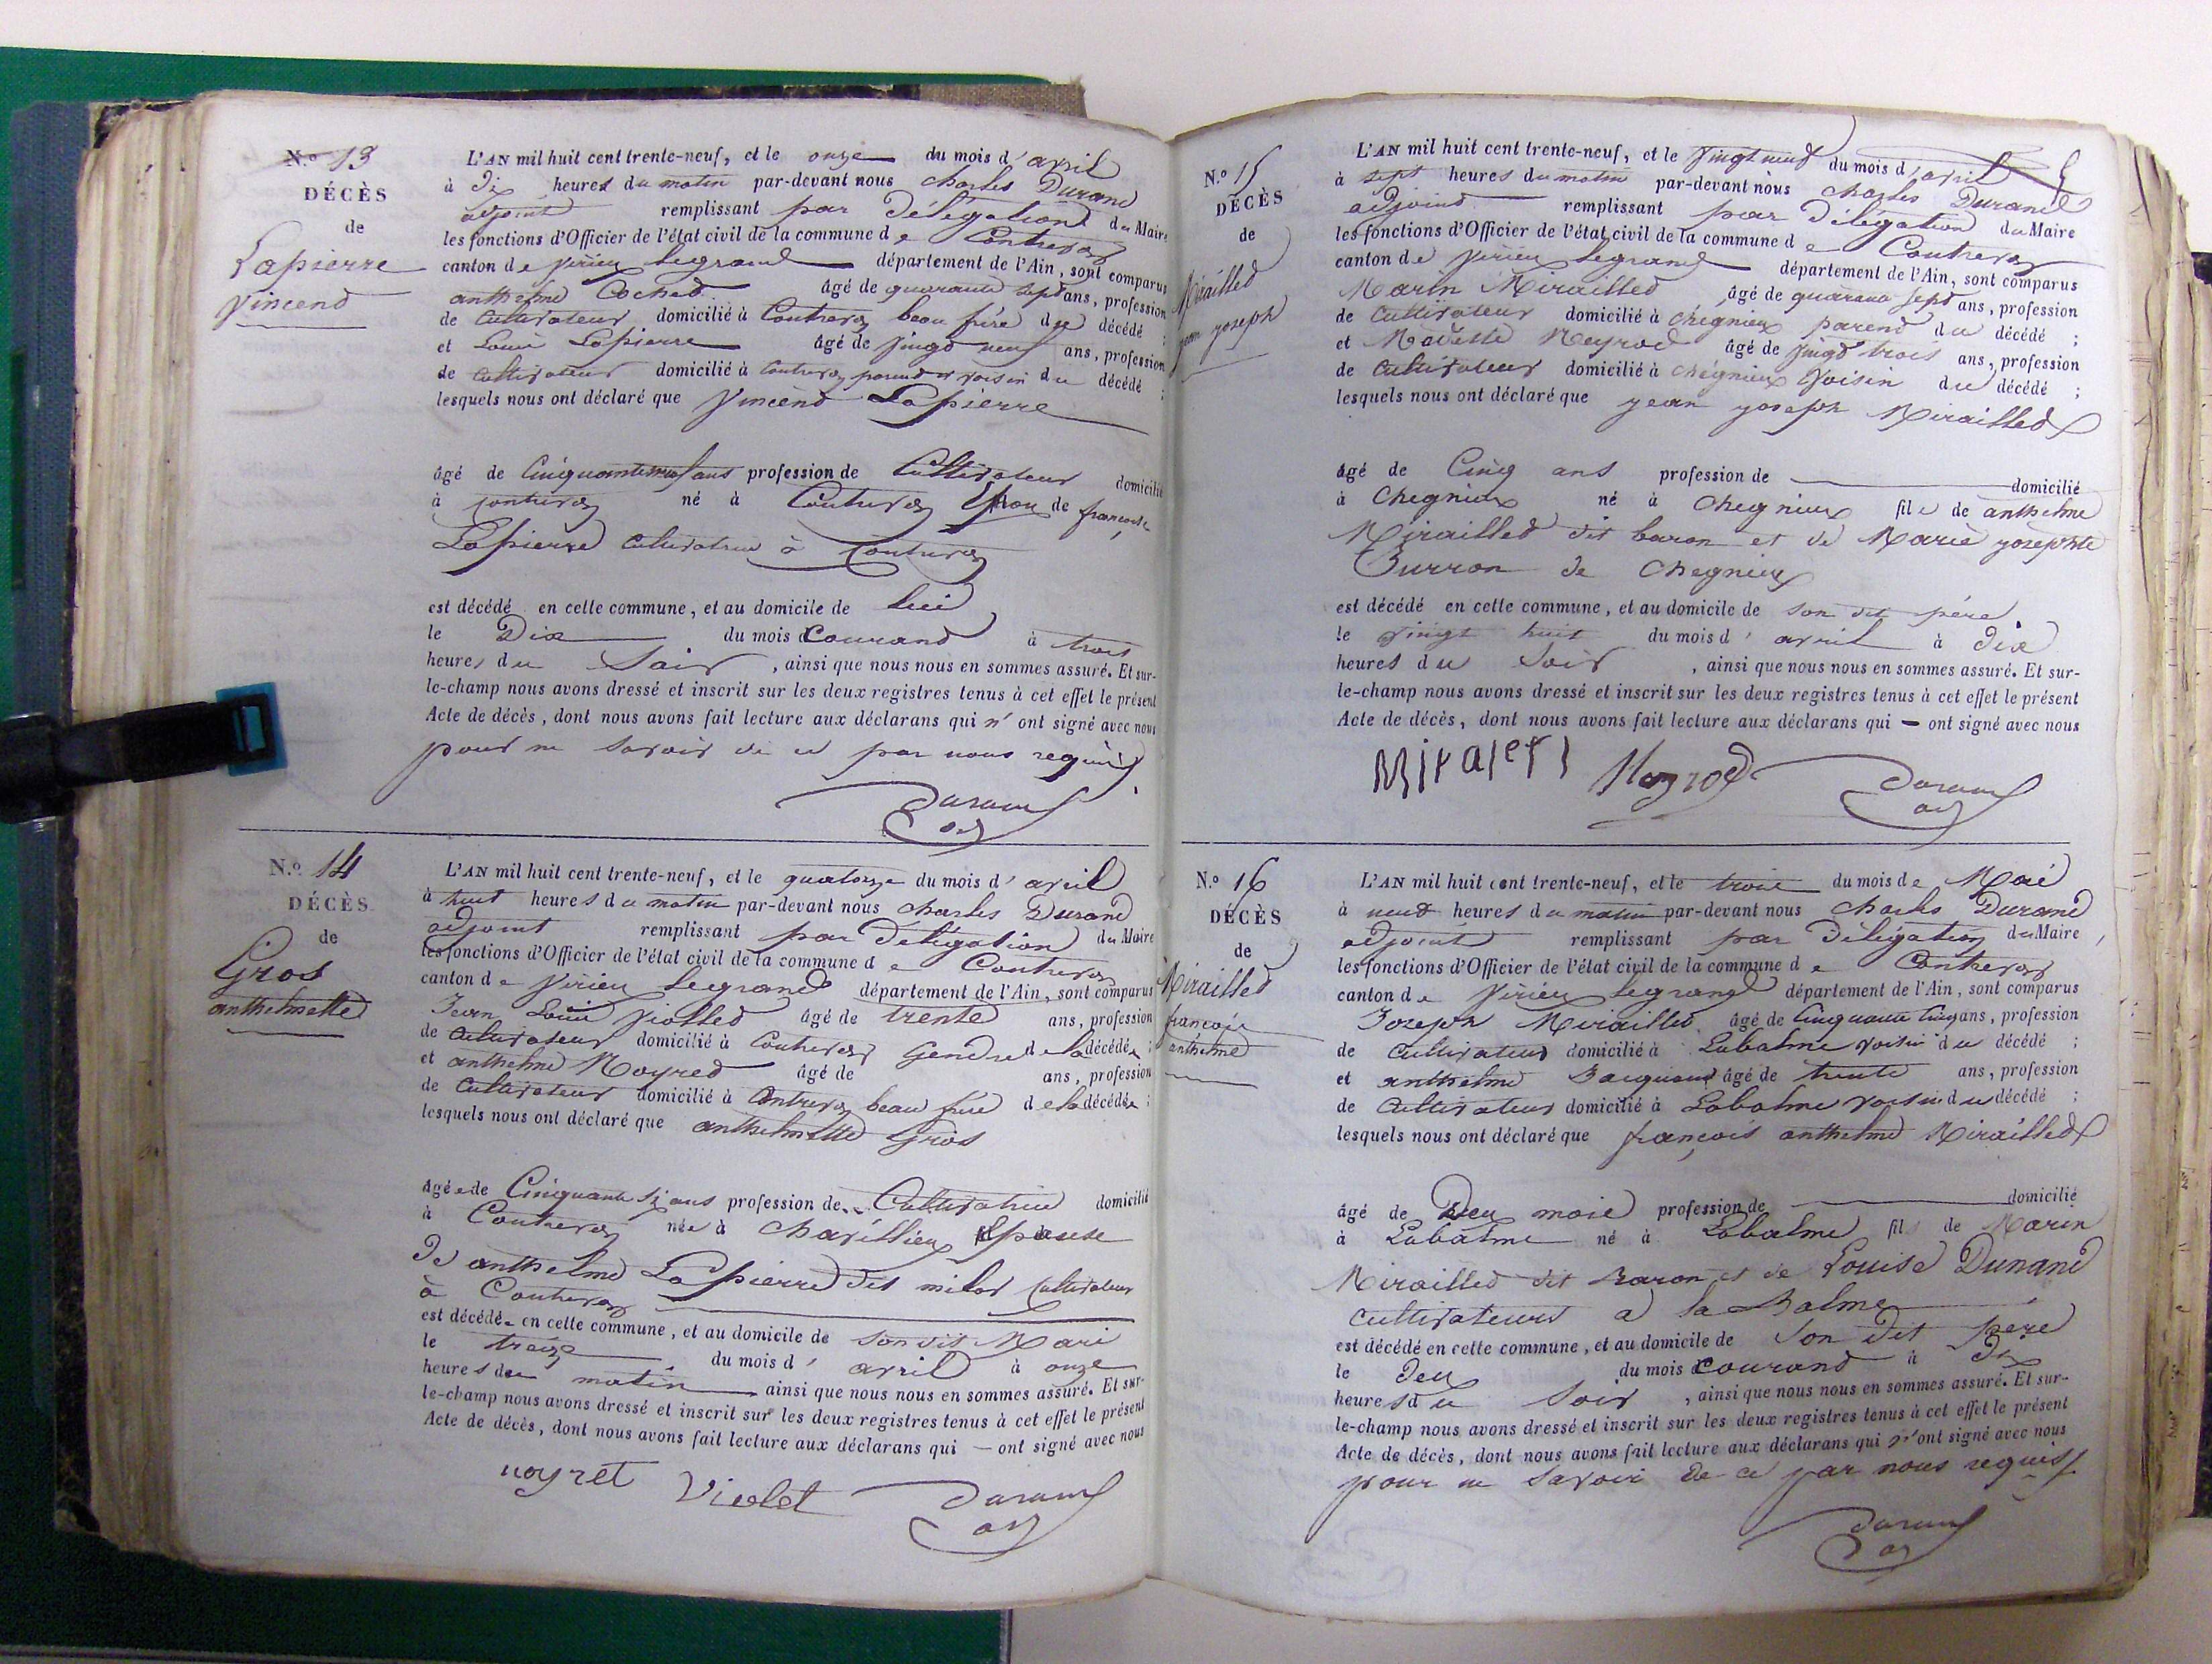 N.º 13
DÉCÈS
de
Lapierre
Vincend
L'AN mil huit cent trente-neuf, et le onze du mois d'avril
à dix heures du matin par-devant nous charles Durand
adjoint remplissant par Délégation du Maire
les fonctions d'Officier de l'état civil de la commune de Contrevoz
canton de Virieu Legrand département de l'Ain, sont comparus
anthelme Cochet âgé de quarante sept ans, profession
de Cultivateur domicilié à Contrevoz beau frére du décédé ;
et Louis Lapierre âgé de Vingt neuf ans, profession
de cultivateur domicilié à Contrevoz parend et voisin du décédé ;
lesquels nous ont déclaré que Vincend Lapierre
âgé de Cinquante neuf ans profession de Cultivateur domicilié
à contrevoz né à Contrevoz Epou de françoise
Lapierre cultivatrice à Contrevoz
est décédé en cette commune, et au domicile de lui
le Dix du mois courand à trois
heures du Soir, ainsi que nous nous en sommes assuré. Et sur-
le-champ nous avons dressé et inscrit sur les deux registres tenus à cet effet le présent
Acte de décès, dont nous avons fait lecture aux déclarans qui n'ont signé avec nous
pour ne savoir de ce par nous requis
Durand
adj
N.º 14
DÉCÈS
de
Gros
anthelmette
L'AN mil huit cent trente-neuf, et le quatorze du mois d'avril
à huit heures du matin par-devant nous charles Durand
adjoint remplissant par Délégation du Maire
les fonctions d'Officier de l'état civil de la commune de Contrevoz
canton de Virieu Legrand département de l'Ain, sont comparus
Jean Louis Violled âgé de trente ans, profession
de cultivateur domicilié à Contrevoz Gendre de la décédée ;
et anthelme Noyred âgé de ans, profession
de Cultivateur domicilié à Contrevoz beau frére de la décédée ;
lesquels nous ont déclaré que anthelmette Gros
âgée de Cinquante six ans profession de Cultivatrice domicilié
à Contrevoz née à Charillieu Epouse
De anthelme Lapierre dit milor Cultivateur
à Contrevoz
est décédée en cette commune, et au domicile de son dit Mari
le treize du mois d'avril à onze
heures du matin ainsi que nous nous en sommes assuré. Et sur-
le-champ nous avons dressé et inscrit sur les deux registres tenus à cet effet le présent
Acte de décès, dont nous avons fait lecture aux déclarans qui — ont signé avec nous
noyret Violet Durand
adj
N.º 15
DÉCÈS
de
Mirailled
jean yoseph
L'AN mil huit cent trente-neuf, et le Vingt neuf du mois d'avril
à sept heures du matin par-devant nous charles Durand
adjoind remplissant par Délégation du Maire
les fonctions d'Officier de l'état civil de la commune de Contrevoz
canton de Virieu Legrand département de l'Ain, sont comparus
Marin Mirailled âgé de quarante sept ans, profession
de Cultivateur domicilié à chegnieux parend du décédé ;
et Modeste Neyrod âgé de Vingt trois ans, profession
de Cultivateur domicilié à chegnieux Voisin du décédé ;
lesquels nous ont déclaré que yean yoseph Mirailled
âgé de Cinq ans profession de domicilié
à Chegnieux né à Chegnieux fils de anthelme
Mirailled dit baron et de Marie yosephte
Burron de Chegnieux
est décédé en cette commune, et au domicile de son dit pére
le vingt huit du mois d'avril à Dix
heures du Soir, ainsi que nous nous en sommes assuré. Et sur-
le-champ nous avons dressé et inscrit sur les deux registres tenus à cet effet le présent
Acte de décès, dont nous avons fait lecture aux déclarans qui — ont signé avec nous
Durand
adj
N.º 16
DÉCÈS
de
Mirailled
françois
anthelme
L'AN mil huit cent trente-neuf, et le trois du mois de Mai
à neuf heures du matin par-devant nous charles Durand
adjoint remplissant par Délégation du Maire
les fonctions d'Officier de l'état civil de la commune de Contrevoz
canton de Virieu Legrand département de l'Ain, sont comparus
Joseph Mirailled âgé de Cinquante Cinq ans, profession
de cultivateur domicilié à Labalme voisin du décédé ;
et anthelme Jacquand âgé de trente ans, profession
de Cultivateur domicilié à Labalme voisin du décédé ;
lesquels nous ont déclaré que françois anthelme Mirailled
âgé de Deux mois profession de domicilié
à Labalme né à Labalme fils de Marin
Mirailled dit Baron et de Louise Dunand
cultivateurs à la Balme
est décédé en cette commune, et au domicile de Son dit pére
le Deux du mois courand à Dix
heures du Soir, ainsi que nous nous en sommes assuré. Et sur-
le-champ nous avons dressé et inscrit sur les deux registres tenus à cet effet le présent
Acte de décès, dont nous avons fait lecture aux déclarans qui n'ont signé avec nous
pour ne savoir de ce par nous requis
Durand
adj